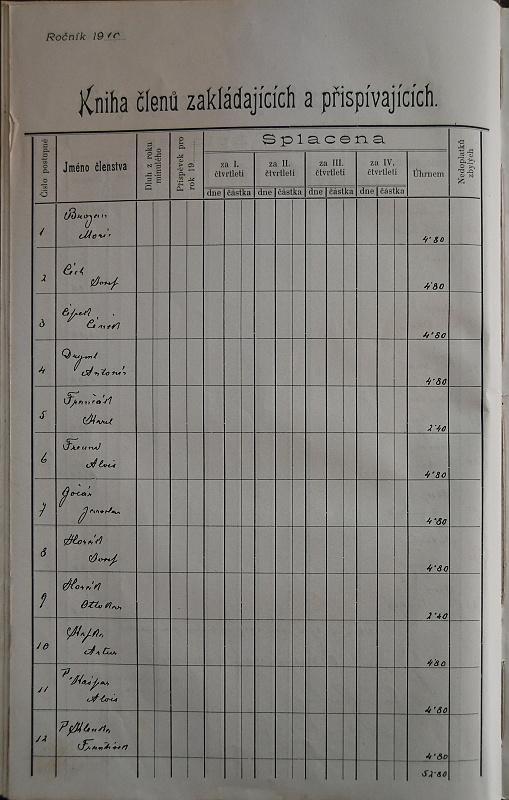 Ročník 1910
Kniha členů zakládajících a přispívajících.
Číslo postupné
Jméno členstva
Dluh z roku minulého
Příspěvek pro rok 19
Splacena
za I. čtvrtletí
za II. čtvrtletí
za III. čtvrtletí
za IV. čtvrtletí
Úhrnem
Nedoplatků zbylých
dne částka dne částka dne částka dne částka
1
4·80
2 Čech
Josef 4·80
3 Čapek
Čeněk 4·80
4
Antonín 4·80
5
Karel 2·40
6 Freund
Alois 4·80
7 Gočár
Jaroslav 4·80
8 Horák
Josef 4·80
9 Horák
Ottokar 2·40
10
Artur 4·80
11 P. Kašpar
Alois 4·80
12 P.
František 4·80
52·80